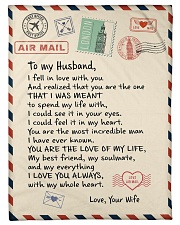 AIR MAIL
To my Husband,
I fell in love with you
And realized that you are the one
THAT I WAS MEANT
to spend my life with,
I could see it in your eyes.
I could feel it in my heart.
You are the most incredible man
I have ever known.
YOU ARE THE LOVE OF MY LIFE,
My best friend, my soulmate,
and my everything
I LOVE YOU ALWAYS,
with my whole heart.
Love, Your Wife